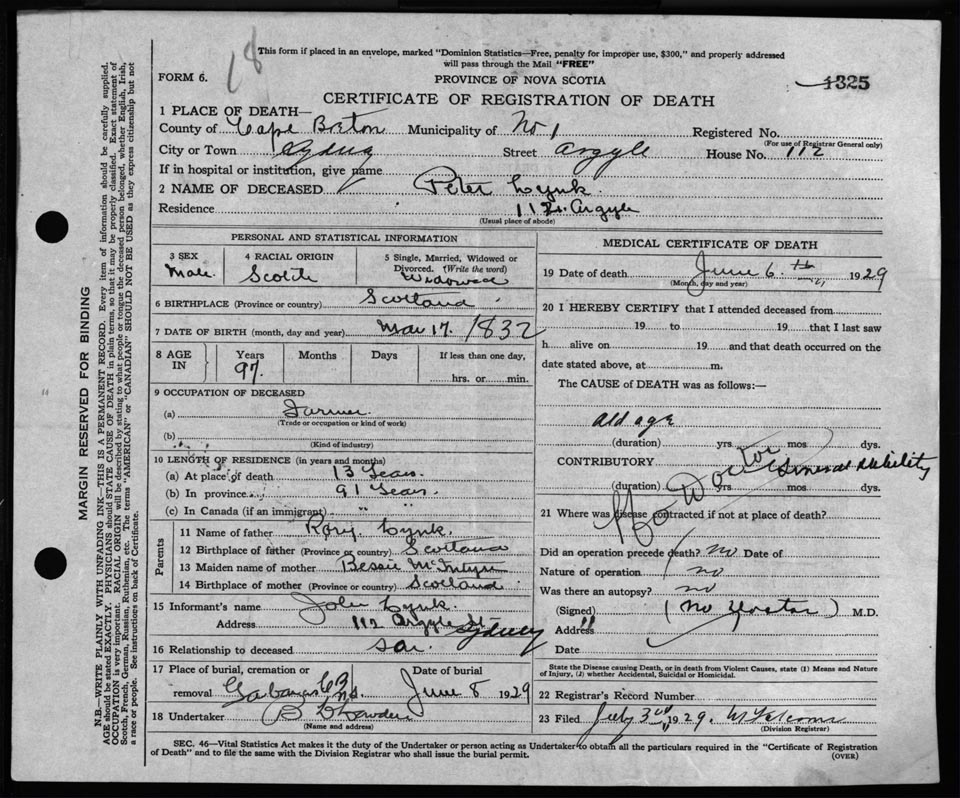 18
This form if placed in an envelope, marked "Dominion Statistics—Free, penalty for improper use, $300," and properly addressed
will pass through the Mail "FREE"
FORM 6.
PROVINCE OF NOVA SCOTIA
1325
CERTIFICATE OF REGISTRATION OF DEATH
1 PLACE OF DEATH—
County of Cape Breton Municipality of No 1 Registered No.
(For use of Registrar General only)
City or Town Sydney Street Argyle House No. 112
If in hospital or institution, give name
2 NAME OF DECEASED Peter Lynk
Residence 112 Argyle
(Usual place of abode)
PERSONAL AND STATISTICAL INFORMATION
3 SEX 4 RACIAL ORIGIN 5 Single, Married, Widowed or
Divorced. (Write the word)
Male Scotch Widowed
6 BIRTHPLACE (Province or country) Scotland
7 DATE OF BIRTH (month, day and year) Mar 17. 1832
8 AGE IN Years Months Days If less than one day,
97. hrs. or min.
9 OCCUPATION OF DECEASED
(a) Farmer
(Trade or occupation or kind of work)
(b)
(Kind of industry)
10 LENGTH OF RESIDENCE (in years and months)
(a) At place of death 13 Years.
(b) In province 91 Years.
(c) In Canada (if an immigrant) " "
Parents
11 Name of father Rory Lynk.
12 Birthplace of father (Province or country) Scotland
13 Maiden name of mother Bessie McIntyre
14 Birthplace of mother (Province or country) Scotland
15 Informant's name John Lynk.
Address 112 Argyle St Sydney
16 Relationship to deceased son
17 Place of burial, cremation or Date of burial
removal Gabarus June 8 1929
18 Undertaker
(Name and address)
MEDICAL CERTIFICATE OF DEATH
19 Date of death June 6th 1929
(Month, day and year)
20 I HEREBY CERTIFY that I attended deceased from
19 to 19 that I last saw
h alive on 19 and that death occurred on the
date stated above, at m.
The CAUSE of DEATH was as follows:—
Old age
(duration) yrs. mos. dys.
CONTRIBUTORY General Debility
(duration) yrs. mos. dys.
No Doctor
21 Where was disease contracted if not at place of death?
Did an operation precede death? no Date of
Nature of operation no
Was there an autopsy? no
(Signed) (No Doctor) M.D.
Address "
Date
State the Disease causing Death, or in death from Violent Causes, state (1) Means and Nature
of Injury, (2) whether Accidental, Suicidal or Homicidal.
22 Registrar's Record Number
23 Filed July 3rd 1929.
(Division Registrar)
SEC. 46—Vital Statistics Act makes it the duty of the Undertaker or person acting as Undertaker to obtain all the particulars required in the "Certificate of Registration
of Death" and to file the same with the Division Registrar who shall issue the burial permit.
(OVER)
MARGIN RESERVED FOR BINDING
N.B.—WRITE PLAINLY WITH UNFADING INK—THIS IS A PERMANENT RECORD. Every item of information should be carefully supplied.
AGE should be stated EXACTLY. PHYSICIANS should STATE CAUSE OF DEATH in plain terms, so that it may be properly classified. Exact statement of
OCCUPATION is very important. RACIAL ORIGIN will be described by stating to what people or tongue the deceased person belonged, whether English, Irish,
Scotch, French, German, Russian, Ruthenian, etc. The terms "AMERICAN" or "CANADIAN" SHOULD NOT BE USED as they express citizenship but not
a race or people. See instructions on back of Certificate.